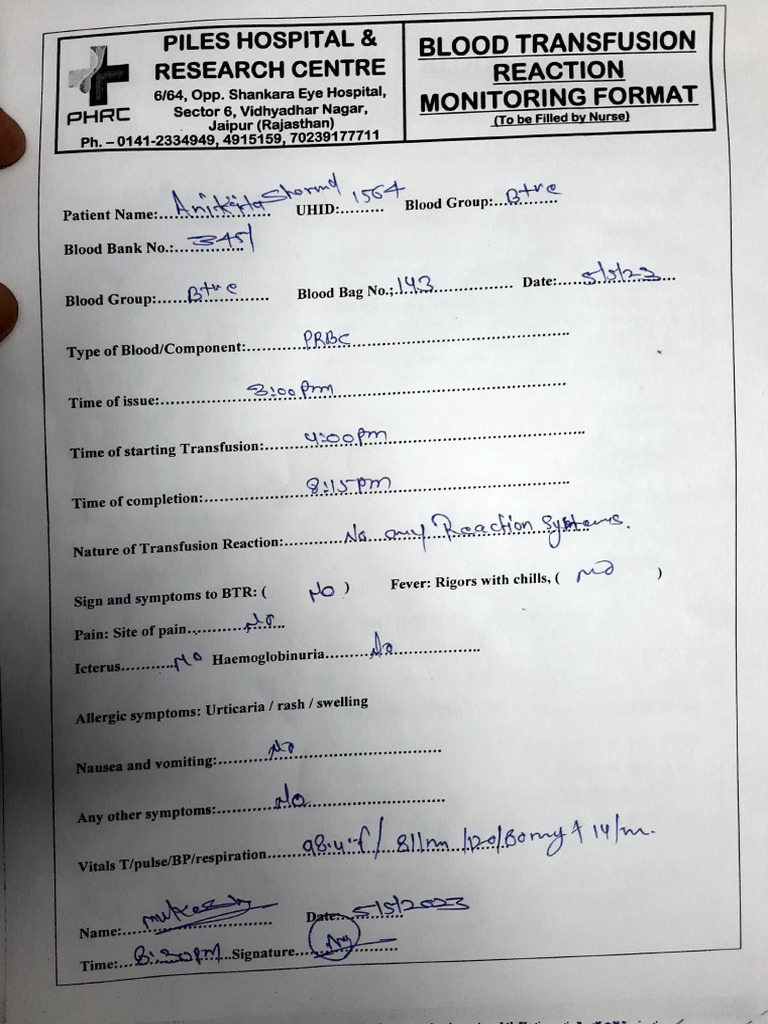 PHRC
PILES HOSPITAL &
RESEARCH CENTRE
6/64, Opp. Shankara Eye Hospital,
Sector 6, Vidhyadhar Nagar,
Jaipur (Rajasthan)
Ph. – 0141-2334949, 4915159, 70239177711
BLOOD TRANSFUSION
REACTION
MONITORING FORMAT
(To be Filled by Nurse)
Patient Name:.......... UHID:......... 1564 Blood Group:... B+ve
Blood Bank No.:... 3451
Blood Group:... B+ve Blood Bag No.:. 143 Date:... 5/5/23
Type of Blood/Component:... PRBC
Time of issue:... 3:00Pm
Time of starting Transfusion:... 4:00Pm
Time of completion:... 8:15PM
Nature of Transfusion Reaction:... No any Reaction
Sign and symptoms to BTR: ( NO ) Fever: Rigors with chills, ( NO )
Pain: Site of pain... No
Icterus... NO Haemoglobinuria... No
Allergic symptoms: Urticaria / rash / swelling
Nausea and vomiting:... No
Any other symptoms:... No
Vitals T/pulse/BP/respiration... 98.4°f/ 81/m /120/80 14/m.
Name:... Mukesh Date:.. 5/5/2023
Time:... 8:30PM Signature...